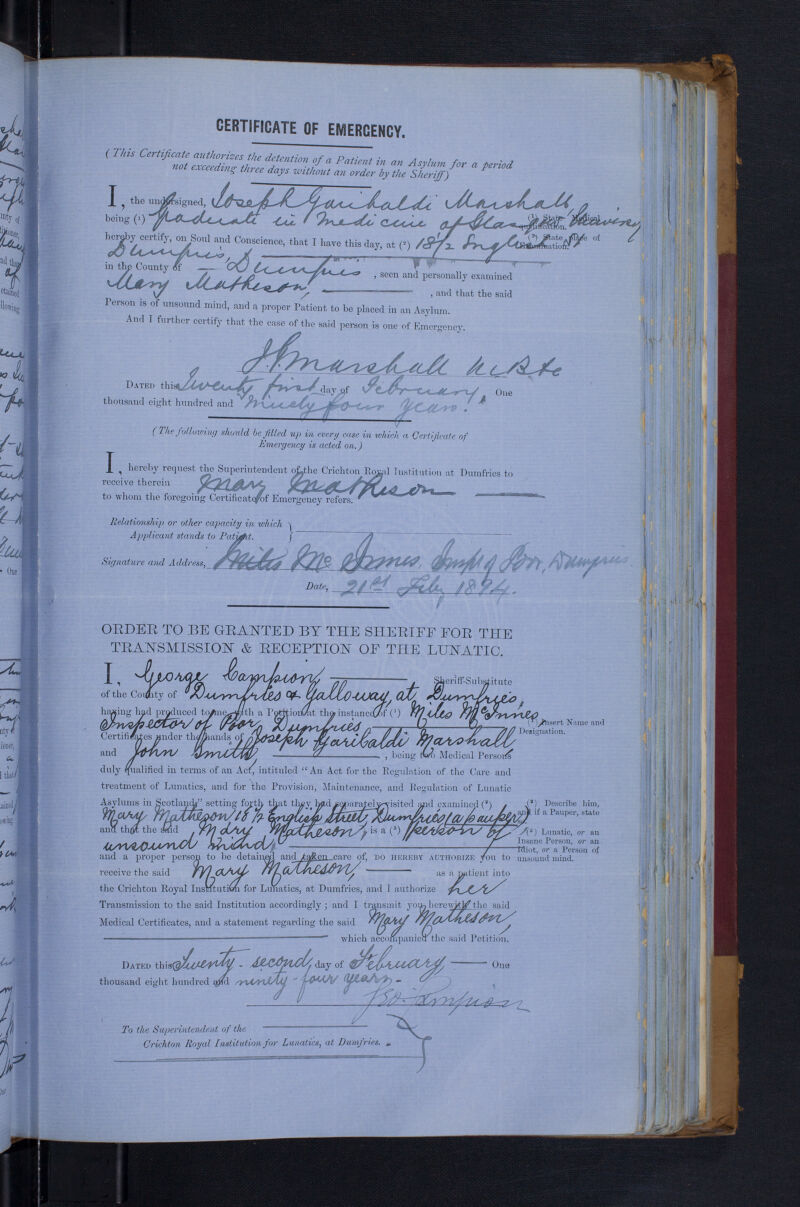 CERTIFICATE OF EMERGENCY.
(This Certificate authorizes the detention of a Patient in an Asylum for a period
not exceeding three days without an order by the Sheriff)
I, the undersigned, Joseph Garibaldi Marshall,
being (1) Graduate in Medicine of Glasgow University
(1) State Medical
qualification.
hereby certify, on Soul and Conscience, that I have this day, at (2) 18 1/2 English St
(2) State place of
Examination.
Dumfries,
in the County of — Dumfries, seen and personally examined
Mary Matheson, ——, and that the said
Person is of unsound mind, and a proper Patient to be placed in an Asylum.
And I further certify that the case of the said person is one of Emergency.
J G Marshall M.B &c
DATED this Twenty first day of February, One
thousand eight hundred and Ninety four years.
(The following should be filled up in every case in which a Certificate of
Emergency is acted on.)
I, hereby request the Superintendent of the Crichton Royal Institution at Dumfries to
receive therein Mary Matheson ——
to whom the foregoing Certificate of Emergency refers.
Relationship or other capacity in which
Applicant stands to Patient. }
Signature and Address, Miles McInnes. Insp of Poor, Dumfries.
Date, 21st Feby 1894.
ORDER TO BE GRANTED BY THE SHERIFF FOR THE
TRANSMISSION & RECEPTION OF THE LUNATIC.
I, George Campion, —— Sheriff-Substitute
of the County of Dumfries & Galloway, at Dumfries,
having had produced to me, with a Petition at the instance of (1) Miles McInnes,
(1) Insert Name and
Designation.
Inspector of Poor, Dumfries
Certificates under the hands of Joseph Garibaldi Marshall
and John Smith, ——, being two Medical Persons
duly qualified in terms of an Act, intituled "An Act for the Regulation of the Care and
treatment of Lunatics, and for the Provision, Maintenance, and Regulation of Lunatic
Asylums in Scotland," setting forth that they had separately visited and examined (2)
(2) Describe him,
and if a Pauper, state
Mary Matheson 18 1/2 English Street, Dumfries (a pauper)
and that the said Mary Matheson, is a (3) person of
(3) Lunatic, or an
Insane Person, or an
Idiot, or a Person of
unsound mind.
unsound mind,
and a proper person to be detained and taken care of, DO HEREBY AUTHORIZE you to
receive the said Mary Matheson, —— as a patient into
the Crichton Royal Institution for Lunatics, at Dumfries, and I authorize her
Transmission to the said Institution accordingly; and I transmit you herewith the said
Medical Certificates, and a statement regarding the said Mary Matheson,
which accompanied the said Petition.
DATED this Twenty-second, day of February, —— One
thousand eight hundred and ninety-four years.
Geo. Campion
To the Superintendent of the
Crichton Royal Institution for Lunatics, at Dumfries.